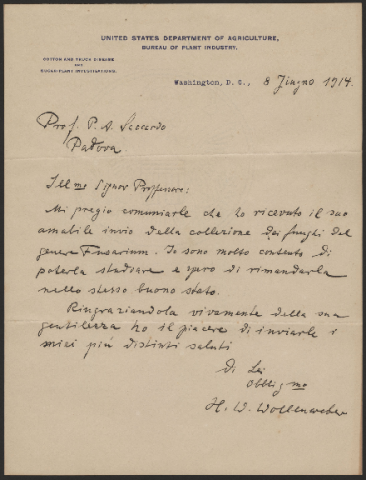 UNITED STATES DEPARTMENT OF AGRICULTURE,
BUREAU OF PLANT INDUSTRY.
COTTON AND TRUCK DISEASE
AND
SUGAR-PLANT INVESTIGATIONS.
Washington, D. C., 8 Jiugno 1914.
Prof. P. A. Saccardo
Padova.
Illmo Signor Professore:
Mi pregio comuniarle che ho ricevuto il suo
amabile invio della collezione dei funghi del
genere Fusarium. Io sono molto contento di
poterla studiare e spero di rimandarla
nello stesso buono stato.
Ringraziandola vivamente della sua
gentilezza ho il piacere di inviarle i
miei più distinti saluti
di Lei
obbligmo
H. W. Wollenweber